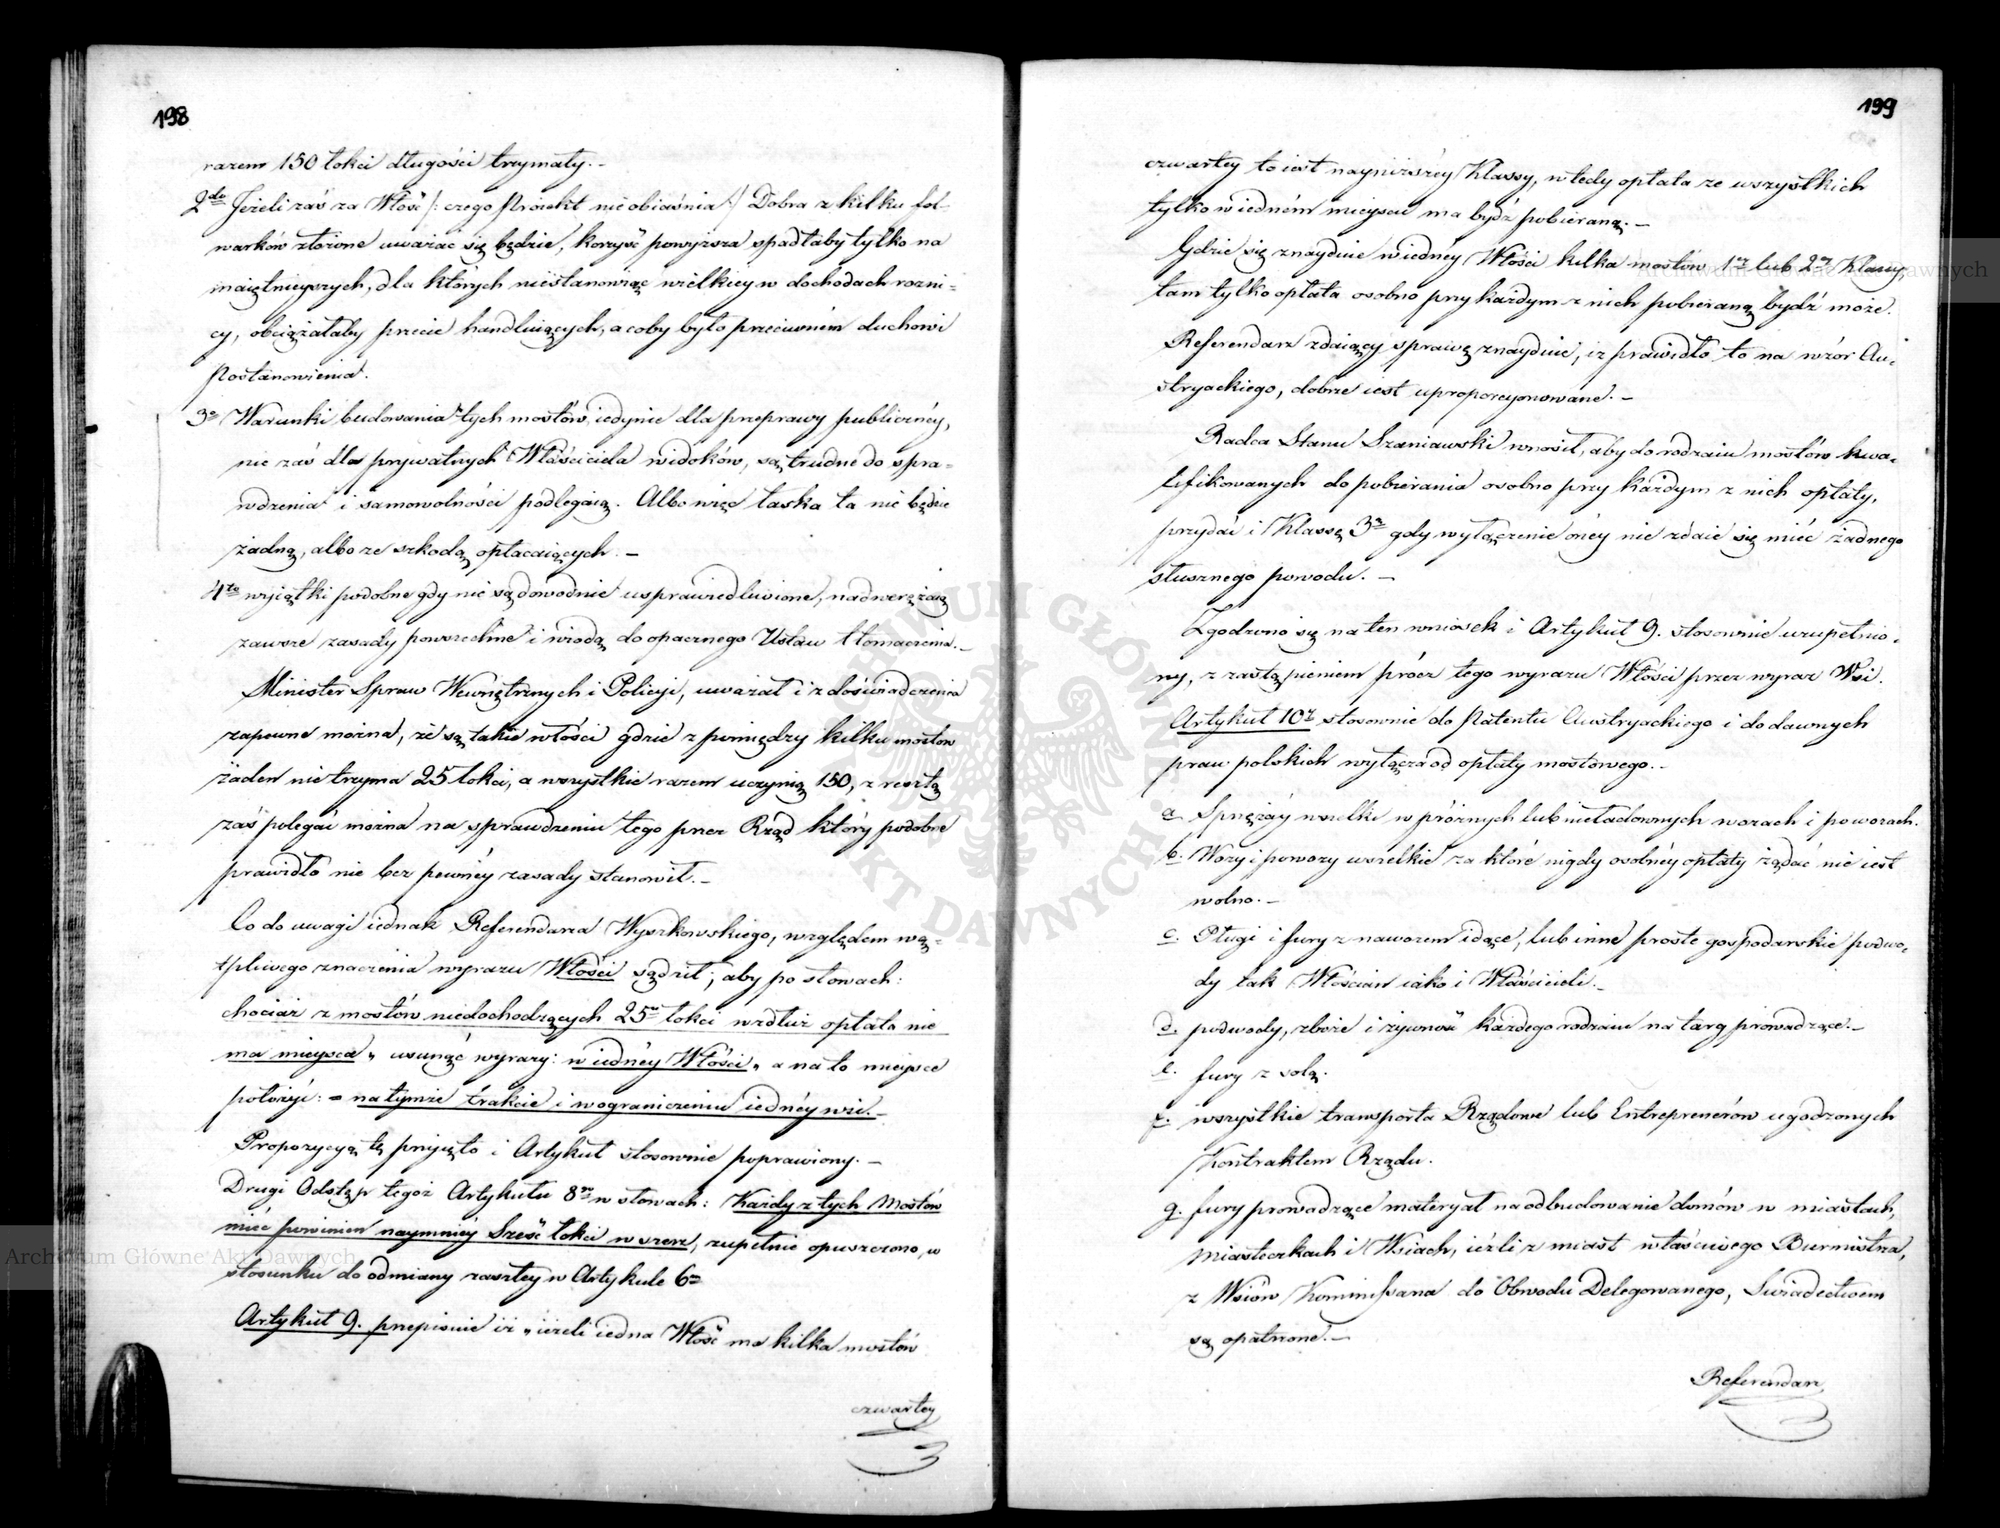 198
razem 150 łokci długości trzymały. –
2do Jeżeli zaś za Włość /: czego Proiekt nie obiaśnia :/ Dobra z kilku fol-
warków złożone uważać się będzie, korzyść powyższa spadłaby tylko na
maiętnieyszych, dla których niestanowiąc wielkiey w dochodach rożni-
cy, obciążałaby przecie handluiących, a coby było przeciwném duchowi
Postanowienia.
3o Warunki budowania tych mostów iedynie dla przeprawy publicznéy,
nie zaś dla prywatnych Właściciela widoków, są trudne do spra-
wdzenia i samowolności podlegaią. Albo więc łaska ta nie będzie
żadną, albo ze szkodą opłacaiących. –
4to wyiątki podobne gdy nie są dowodnie usprawiedliwione, nadwerężaią
zawsze zasady powszechne i wiodą do opacznego Ustaw tłomaczenia. –
Minister Spraw Wewnętrznych i Policyi, uważał i z doświadczenia
zapewne można, że są takie włości gdzie z pomiędzy kilku mostów
żaden nie trzyma 25 łokci, a wszystkie razem uczynią 150, z resztą
zaś polegać można na sprawdzeniu tego przez Rząd który podobne
prawidło nie bez pewnéy zasady stanowił. –
Co do uwagi iednak Referendarza Wyszkowskiego, względem wą-
tpliwego znaczenia wyrazu Włości sądził, aby po słowach:
chociaż z mostów niedochodzących 25u łokci wzdłuż opłata nie
ma mieysca „ usunąć wyrazy: w iednéy Włości „ a na to mieysce
położyć: = na tymże trakcie i w ograniczeniu iednéy wsi. –
Propozycyą tę przyięto i Artykuł stosownie poprawiony. –
Drugi Odstęp tegoż Artykułu 8go w słowach: Każdy z tych Mostów
mieć powinien naymniéy Sześć łokci w szerz, zupełnie opuszczono, w
stosunku do odmiany zaszłey w Artykule 6m
Artykuł 9. przepisuie iż „ ieżeli iedna Włość ma kilka mostów
czwartey
199
czwartey to iest nayniższéy Klassy, wtedy opłata ze wszystkich
tylko w iedném mieyscu ma bydź pobieraną. –
Gdzie się znayduie w iednéy Włości kilka mostów 1éy lub 2éy Klassy,
tam tylko opłata osobno przy każdym z nich pobieraną bydź może.
Referendarz zdaiący sprawę znayduie, iż prawidło to na wzór Au-
stryackiego, dobrze iest uproporcyonowane. –
Radca Stanu Szaniawski wnosił, aby do rodzaiu mostów kwa-
lifikowanych do pobierania osobno przy każdym z nich opłaty,
przydać i Klassę 3ą gdy wyłączenie onéy nie zdaie się mieć żadnego
słusznego powodu. –
Zgodzono się na ten wniosek i Artykuł 9. stosownie uzupełnio-
ny, z zastąpieniem prócz tego wyrazu Włości przez wyraz Wsi.
Artykuł 10y stosownie do Patentu Austryackiego i do dawnych
praw polskich wyłącza od opłaty mostowego. –
a. Sprzężay wszelki w próżnych lub nieładownych wozach i powozach.
b. Wozy i powozy wszelkie za które nigdy osobnéy opłaty żądać nie iest
wolno. –
c. Pługi i fury z nawozem idące, lub inne proste gospodarskie podwo-
dy tak Włościan iako i Właścicieli. –
d. podwody, zboże i żywność każdego rodzaiu na targ prowadzące. –
e. fury z solą.
f. wszystkie transporta Rządowe lub Entreprenerów ugodzonych
Kontraktem Rządu.
g. fury prowadzące materyał na odbudowanie domów w miastach,
Miasteczkach i Wsiach, ieżli z miast właściwego Burmistrza,
z Wsiów Kommissarza do Obwodu Delegowanego, Swiadectwem
są opatrzone. –
Referendarz
Archiwum Główne Akt Dawnych